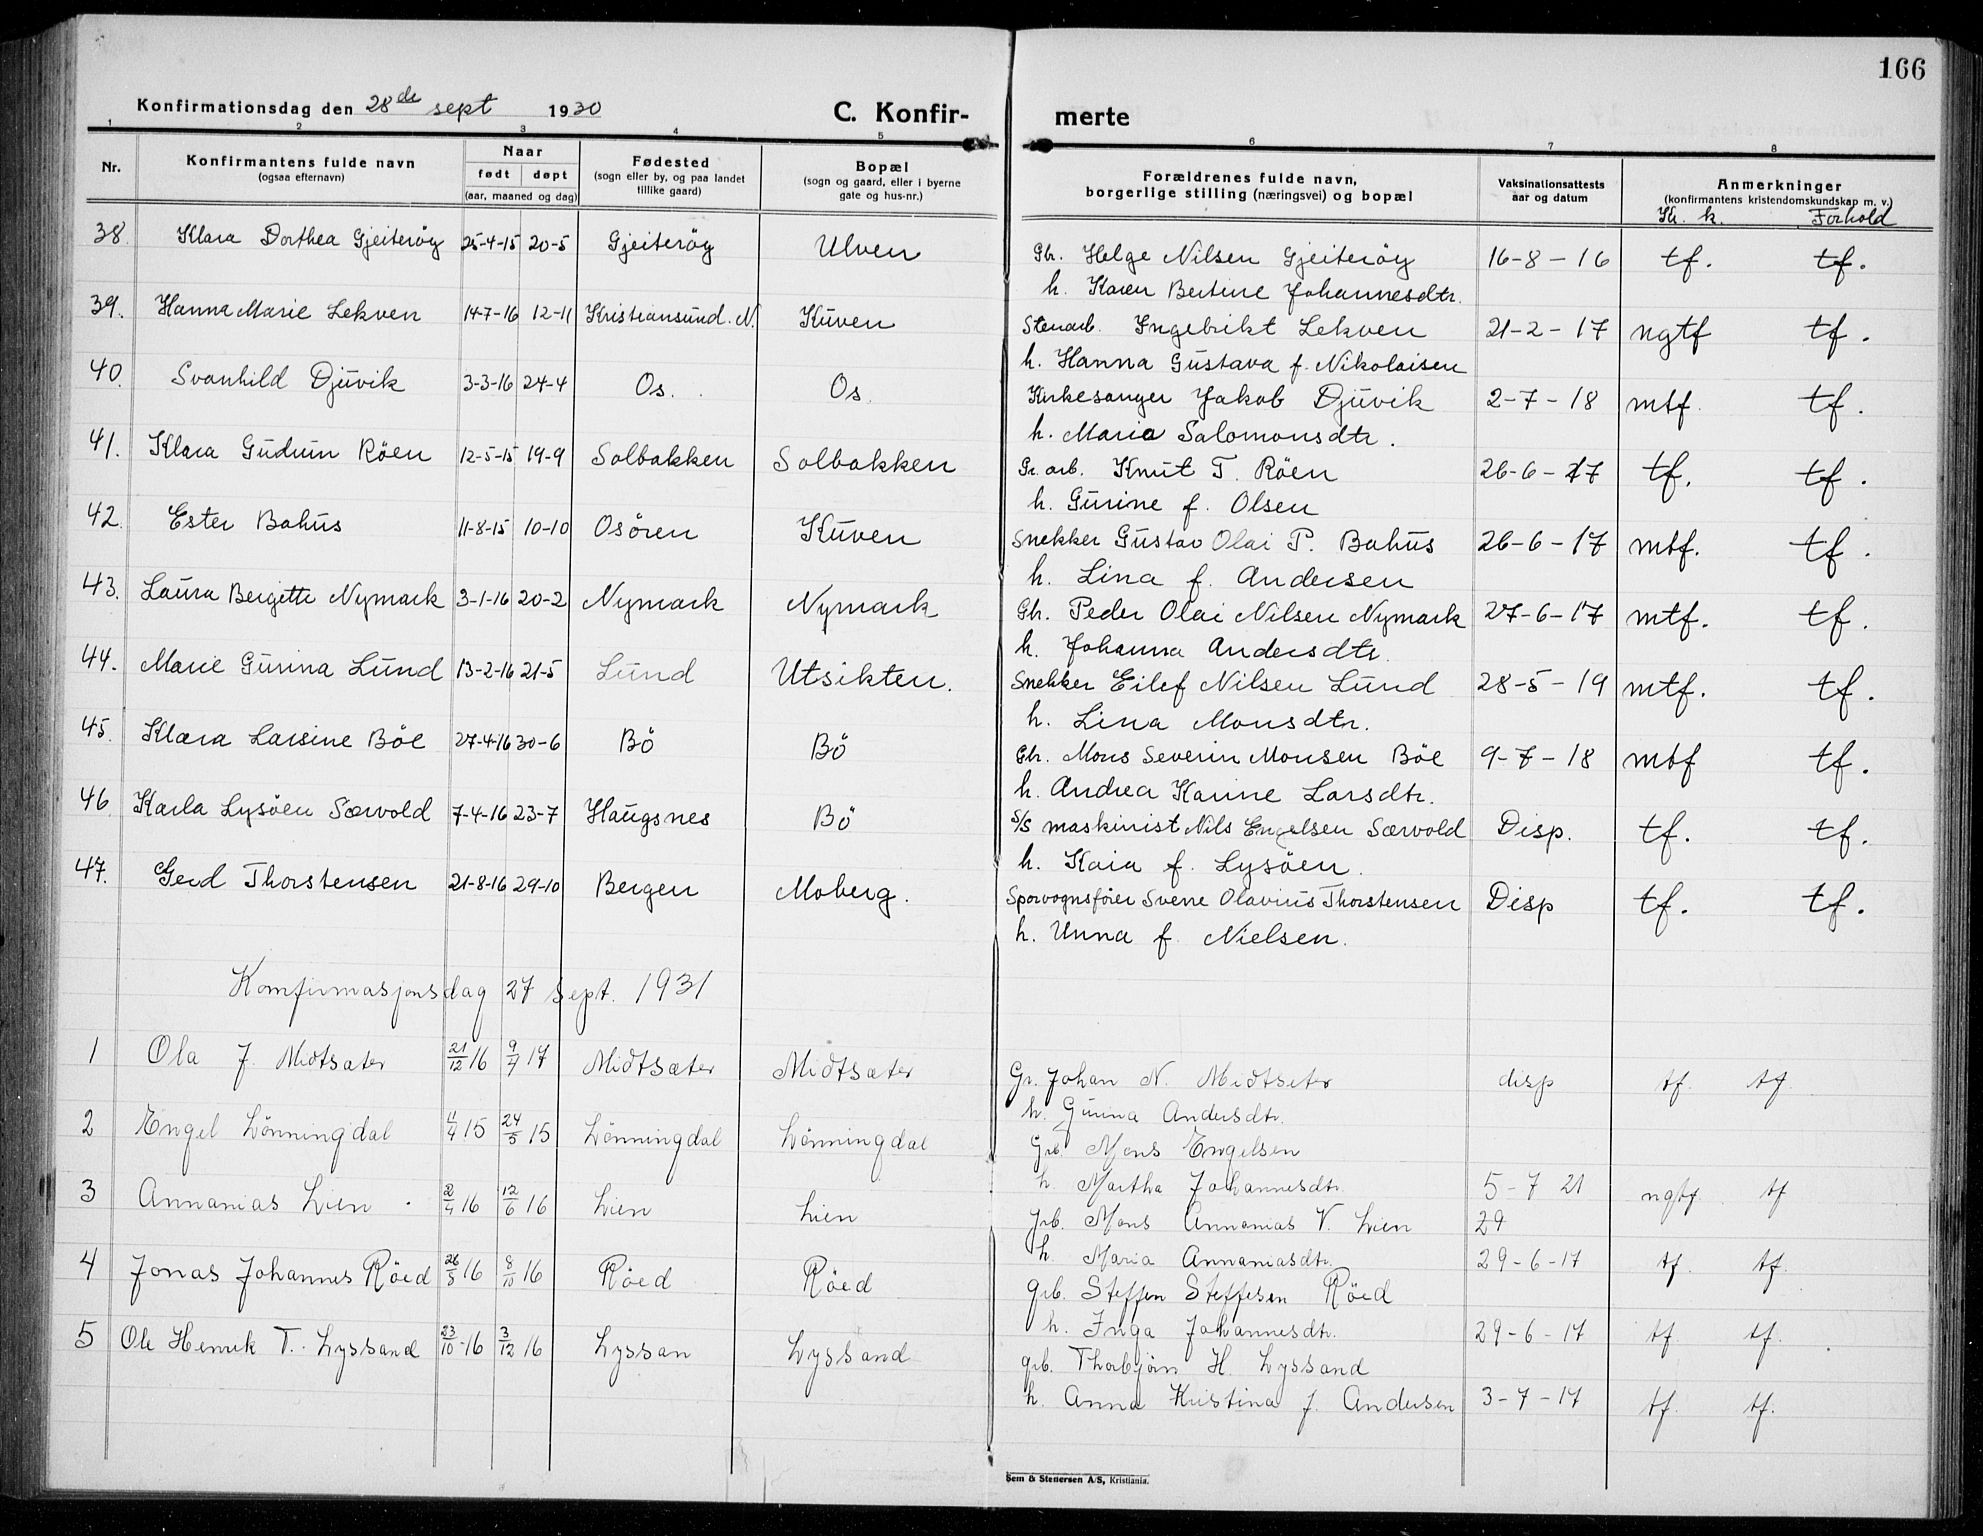 166
Konfirmationsdag den 28de sept 1930 C. Konfir- merte
1 2 3 4 5 6 7 8
Nr. Konfirmantens fulde navn (ogsaa efternavn) Naar født døpt (aar, maaned og dag) Fødested (sogn eller by, og paa landet tillike gaard) Bopæl (sogn og gaard, eller i byerne gate og hus-nr.) Forældrenes fulde navn, borgerlige stilling (næringsvei) og bopæl Vaksinationsattests aar og datum Anmerkninger (konfirmantens kristendomskundskap m. v.)
Kr. k. Forhold
38. Klara Dorthea Gjeiteröy 25-4-15 20-5 Gjeiteröy Ulven Gbr. Helge Nilsen Gjeiteröy 16-8-16 tf. tf.
h. Karen Bertine Johannesdtr.
39. Hanna Marie Lekven 14-7-16 12-11 Kristiansund. N. Kuven Stenarb. Ingebrikt Lekven 21-2-17 ngtf tf.
h. Hanna Gustava f. Nikolaisen
40. Svanhild Djuvik 3-3-16 24-4 Os. Os. Kirkesanger Jakob Djuvik 2-7-18 mtf. tf.
h. Maria Salomonsdtr.
41. Klara Gudrun Röen 12-5-15 19-9 Solbakken Solbakken Gr. arb. Knut T. Röen 26-6-17 tf. tf.
h. Gurine f. Olsen
42. Ester Bahus 11-8-15 10-10 Osören Kuven Snekker Gustav Olai P. Bahus 26-6-17 mtf. tf.
h. Lina f. Andersen
43. Laura Bergitte Nymark 3-1-16 20-2 Nymark Nymark Gbr. Peder Olai Nilsen Nymark 27-6-17 mtf. tf.
h. Johanna Andersdtr.
44. Marie Gurina Lund 13-2-16 21-5 Lund Utsikten. Snekker Eilef Nilsen Lund 28-5-19 mtf. tf.
h. Lina Monsdtr.
45. Klara Larsine Böe 27-4-16 30-6 Bö Bö Gbr. Mons Severin Monsen Böe 9-7-18 mtf tf.
h. Andrea Karine Larsdtr.
46. Karla Lysöen Særvold 7-4-16 23-7 Haugsnes Bö S/S maskinist Nils Engelsen Særvold Disp. tf. tf.
h. Kaia f. Lysöen.
47. Gerd Thorstensen 21-8-16 29-10 Bergen Moberg. Sporvognsförer Sverre Olavius Thorstensen Disp tf. tf.
h. Unna f. Nielsen.
Komfirmasjonsdag 27 Sept. 1931
1 Ola J. Midtsæter 21/12 16 9/4 17 Midtsæter Midtsæter Gr. Johan N. Midtseter disp tf. tf
h. Gurina Andersdtr.
2 Engel Lönningdal 11/4 15 24/5 15 Lönningdal Lönningdal Grb. Mons Engelsen
h. Martha Johannesdtr. 5-7 21 ngtf. tf
3 Annanias Lien 2/4 16 12/6 16 Lien Lien grb. Mons Annanias V. Lien 29
h. Maria Annaniasdtr. 29-6-17 tf. tf.
4 Jonas Johannes Röed 26/8 16 8/10 16 Röed Röed grb. Steffen Steffesen Röed
h. Inga Johannesdtr. 29-6-17 tf tf.
5 Ole Henrik T. Lyssand 23/10-16 3/12 16 Lyssan Lyssand grb. Thorbjörn H. Lyssand
h. Anna Kristina f. Andersen 3-7-17 tf. tf.
Sem & Stenersen A/S, Kristiania.